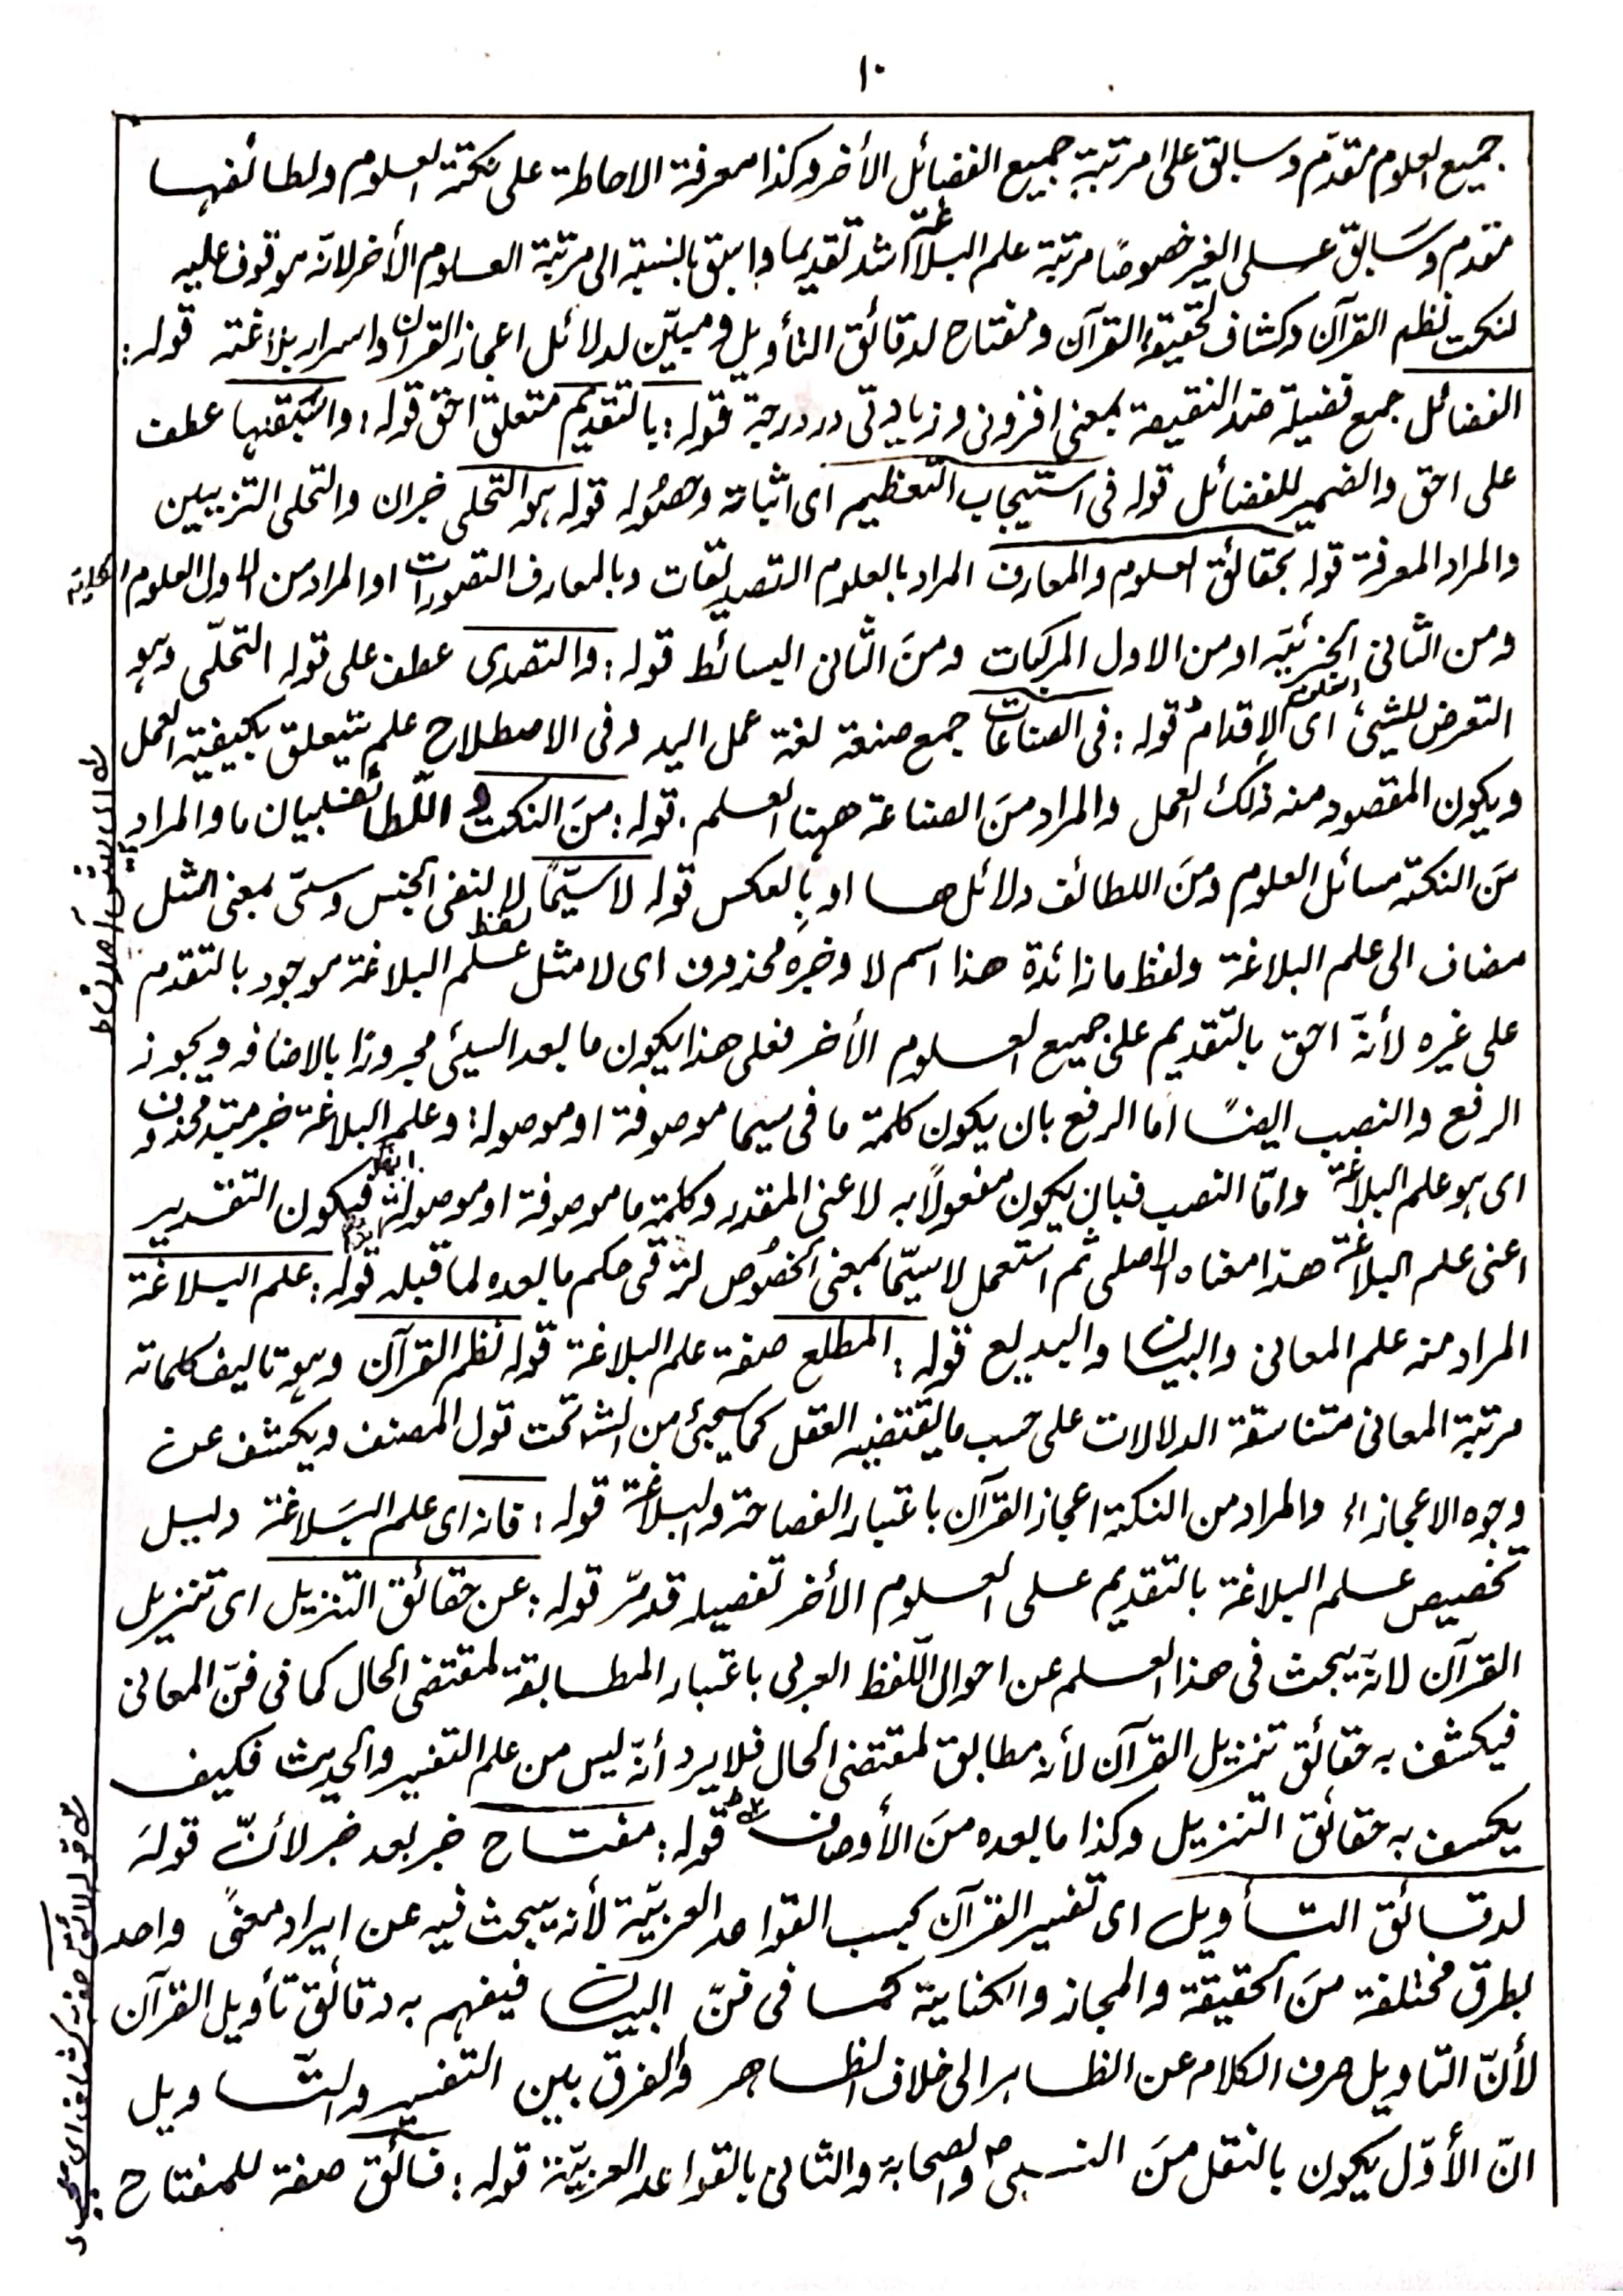 ١٠
جميع العلوم متقدّم وسابق على مرتبة جميع الفضائل الأخر وكذا معرفة الاحاطة على نكتة العلوم ولطائفها
متقدم وسَابق على الغير خصوصًا مرتبة علم البلاغة اشد تقديما واسبق بالنسبة الى مرتبة العلوم الأخر لانّه موقوف عليه
لنكت نظم القرآن وكشاف لحقيقة القرآن ومفتاح لدقائق التأويل ومبيّن لدلائل اعجاز القرآن واسرار بلاغته قوله:
الفضائل جمع فضيلة ضد النقيصة بمعنى افزونى وزيادتى در درجة قوله: بالتقديم متعلق احق قوله: واسْبَقها عطف
على احق والضمير للفضائل قوله فى استيجاب التعظيم اى اثباته وحصُوله قوله هو التحلى خبر ان والتحلى التزيين
والمراد المعرفة قوله بحقائق العلوم والمعارف المراد بالعلوم التصديقات وبالمعارف التصورات او المراد من الاول العلوم الكلية
ومن الثانى الجزئيّة او من الاول المركبات ومنَ الثّانى البسائط قوله: والتصدى عطف على قوله التحلّى وهو
التعرض للشيئ اى الإقدام قوله: فى الصناعات جمع صنعة لغة عمل اليد وفى الاصطلاح علم يتعلق بكيفية العمل
ويكون المقصود منه ذلك العمل والمراد منَ الصناعة ههنا العلم. قوله: منَ النكت و اللّطائف بيان ما والمراد
منَ النكتة مسائل العلوم ومنَ اللطائف دلائلها او بالعكس قوله لاسيّما لا لنفى الجنس وسىّ بمعنى المثل
مضاف الى علم البلاغة ولفظ ما زائدة هذا اسم لا وخبره محذوف اى لا مثل علم البلاغة موجود بالتقدم
على غيره لأنّه احق بالتقديم على جميع العلوم الأخر فعلى هذا يكون ما بعد السيئ مجرورًا بالاضافه ويجوز
الرفع والنصب ايضًا اما الرفع بان يكون كلمة ما فى سيما موصوفة او موصولة: وعلم البلاغة خبر مبتدء محذوف
اى هو علم البلاغة وامّا النصب فبان يكون مفعولًا به لاعنى المقدر وكلمة ما موصوفة او موصولة فيكون التقدير
اعنى علم البلاغة هذا معناه الاصلى ثم استعمل لاسيّما بمعنى الخصُوص لترقى حكم ما بعده لما قبله قوله: علم البلاغة
المراد منه علم المعانى والبيان والبديع قوله: المطلع صفة علم البلاغة قوله نظم القرآن وهو تاليف كلماته
مرتبة المعانى متناسقة الدلالات على حسب ما يقتضيه العقل كما سيجئ من الشـ تحت قول المصنف ويكشف عن
وجوه الاعجاز الخ والمراد من النكتة اعجاز القرآن باعتبار الفصاحة والبلاغة قوله: فانه اى علم البَلاغة دليل
تخصيص علم البلاغة بالتقديم على العلوم الأخر تفصيله قد مرّ قوله: عن حقائق التنزيل اى تنزيل
القرآن لانّه يبحث فى هذا العلم عن احوال اللّفظ العربى باعتبار المطابقة لمقتضى الحال كما فى فنّ المعانى
فيكشف به حقائق تنزيل القرآن لأنه مطابق لمقتضى الحال فلا يرد أنّه ليس من علم التفسير والحديث فكيف
يكسف به حقائق التنزيل وكذا ما بعده منَ الأوصاف قوله: مفتاح خبر بعد خبر لأنّ قولهَ
لدقائق التأويل اى تفسير القرآن بحسب القواعد العربيّة لأنه يبحث فيه عن ايراد معنًى واحد
بطرق مختلفة منَ الحقيقة والمجاز والكناية كما فى فنّ البيان فيفهم به دقائق تأويل القرآن
لأنّ التاويل صرف الكلام عن الظاهر الى خلاف الظاهر والفرق بين التفسير والتّاويل
انّ الأوّل يكون بالنقل منَ النبى ص والصحابة والثانى بالقواعد العربيّة قوله: فائق صفة للمفتاح